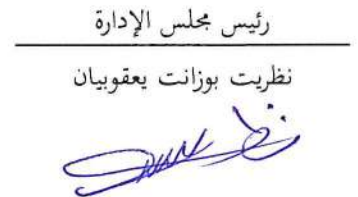 رئيس مجلس الإدارة
نظريت بوزانت يعقوبيان